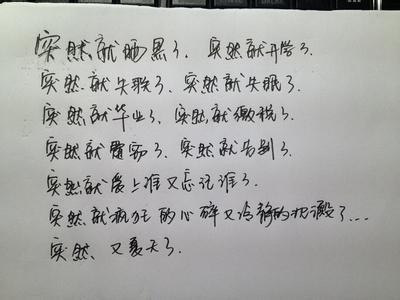 突然就晒黑了、突然就开学了、
突然就失联了、突然就失眠了、
突然就毕业了、突然就缴税了、
突然就劈了、突然就告别了、
突然就爱上谁又忘记谁了、
突然就疯狂的心碎又冷静的理了...
突然、又夏天了、